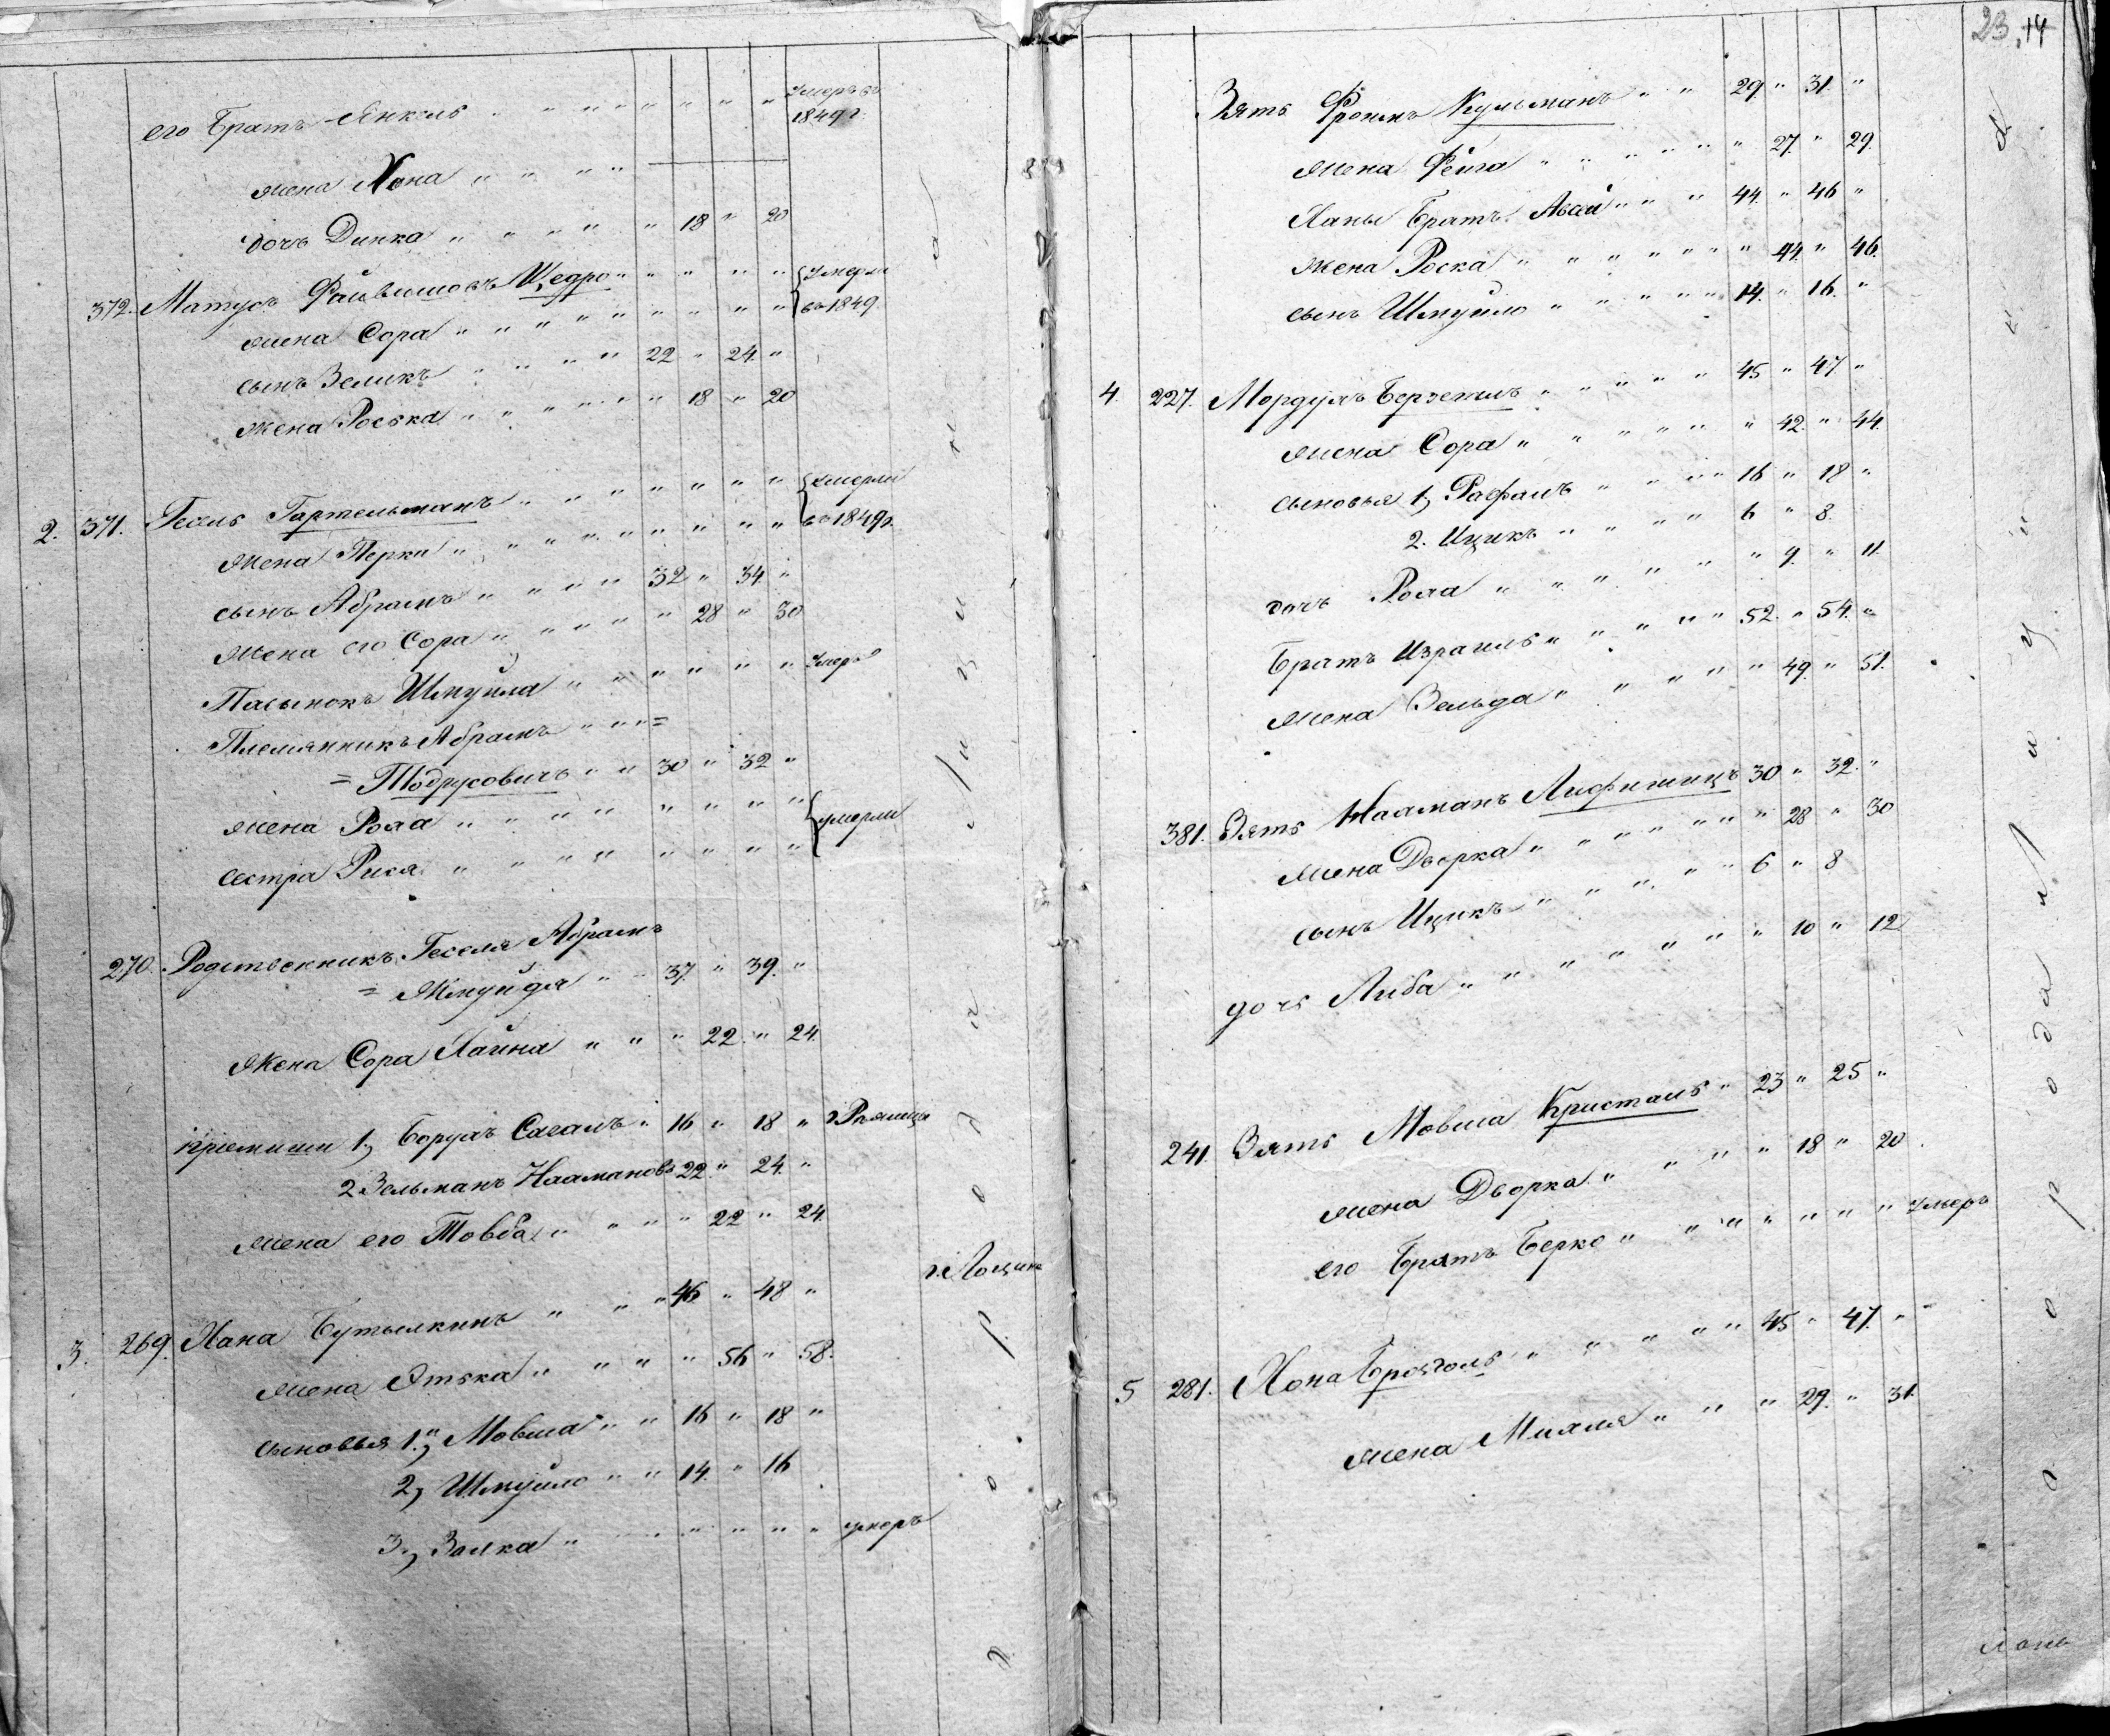 его Братъ Янкель " " " " " " " " Умеръ въ 1849 г.
жена Хона " " " "
дочь Динка " " " " " 18 " 20
372. Матусъ Файвишовъ Щедро " " " " " Умерли
жена Сора " " " " " " " " " въ 1849.
сынъ Зеликъ " " " " 22 " 24. "
жена Роська " " " " " 18 " 20
2. 371. Гесель Гартельманъ " " " " " " " " Умерли
жена Перка " " " " " " " " " въ 1849 г.
сынъ Абрамъ " " " " 32 " 34. "
жена его Сора " " " " " 28 " 30
Пасынокъ Шмуйла " " " " " " " Умеръ
Племянникъ Абрамъ " " " =
= Тодрусовичъ " " 30 " 32 "
жена Рохла " " " " " " " " " умерли
сестра Рися " " " " " " " " "
270. Родственникъ Геселя Абрамъ
= Жмуйдя " " 37. " 39. "
Жена Сора Хаина " " " 22. " 24.
1, Борухъ Сагалъ " 16 " 18 "
2 Зельманъ Наамановъ 22. " 24. "
жена его Товба " " " " 22 " 24.
3. 269. Хана Бутылкинъ " " " 46. " 48 "
жена Этька " " " " 56 " 58.
сыновья 1, Мовша " " 16 " 18 "
2, Шмуйло " " 14. " 16
3, Залка " " " " " " " умеръ
23. 14
Зять Фроимъ Кульманъ " " 29. " 31. "
жена Фейга " " " " " " " 27. " 29.
Ханы Братъ Авсей " " " 44. " 46 "
жена Роска " " " " " " " 44. " 46.
сынъ Шмуйло " " " " " 14. " 16. "
4. 227. Мордухъ " " " " " 45 " 47. "
жена Сора " " " " " " " 42. " 44.
сыновья 1, Рафалъ " " " " 16 " 18 "
2. Ицикъ " " " " " 6 " 8.
дочь Рохла " " " " " " 9. " 11.
Братъ Израиль " " " " " 52. " 54. "
жена Зельда " " " " " " 49. " 51.
381. Зять Нааманъ Лифшицъ 30 " 32. "
жена Дворка " " " " " " " 28 " 30
сынъ Ицикъ " " " " " 6 " 8
дочь Либа " " " " " " " " 10 " 12
241. Зять Мовша Кристаль " 23 " 25 "
жена Дворка " " " " " 18 " 20
его Братъ Берко " " " " " " " Умеръ
5 281. Хона " " " " " 45 " 47. "
жена Михля " " " 29. " 31.